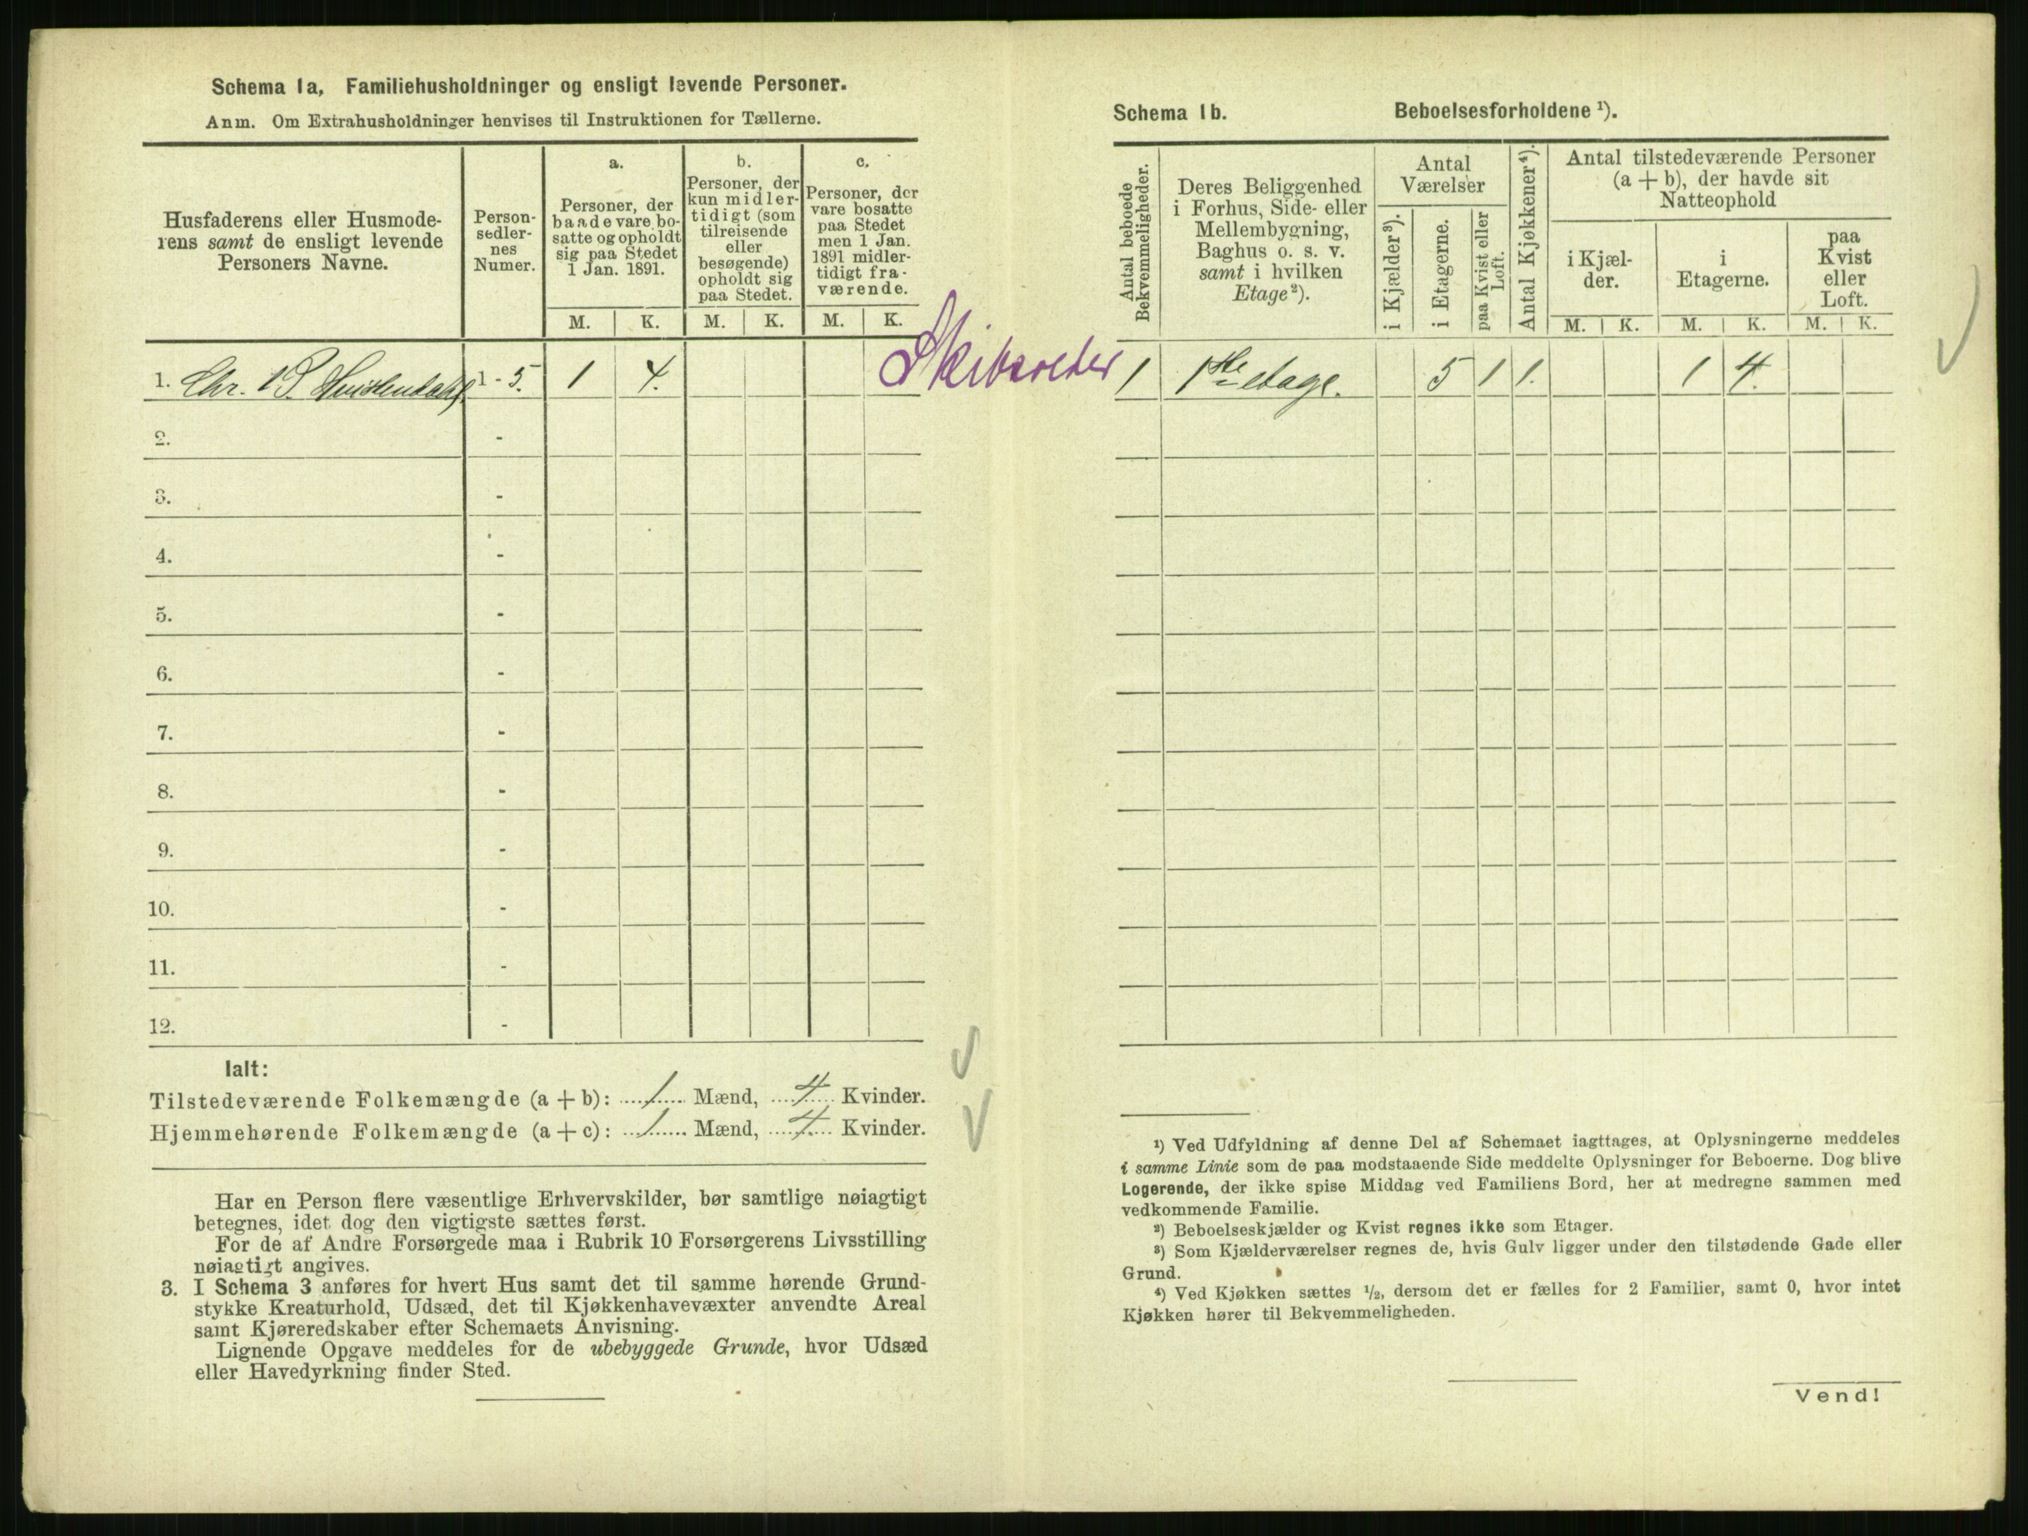 Schema 1a, Familiehusholdninger og ensligt levende Personer.
Anm. Om Extrahusholdninger henvises til Instruktionen for Tællerne.
Husfaderens eller Husmode-
rens samt de ensligt levende
Personers Navne.
Person-
sedler-
nes
Numer.
a.
Personer, der
baade vare bo-
satte og opholdt
sig paa Stedet
1 Jan. 1891.
M. K.
b.
Personer, der
kun midler-
tidigt (som
tilreisende
eller
besøgende)
opholdt sig
paa Stedet.
M. K.
c.
Personer, der
vare bosatte
paa Stedet
men 1 Jan.
1891 midler-
tidigt fra-
værende.
M. K.
1. Chr. 1 - 5. 1 4.
2. -
3. -
4. -
5. -
6. -
7. -
8. -
9. -
10. -
11. -
12. -
Ialt:
Tilstedeværende Folkemængde (a + b): 1 Mænd, 4 Kvinder.
Hjemmehørende Folkemængde (a + c): 1 Mænd, 4 Kvinder.
Har en Person flere væsentlige Erhvervskilder, bør samtlige nøiagtigt
betegnes, idet dog den vigtigste sættes først.
For de af Andre Forsørgede maa i Rubrik 10 Forsørgerens Livsstilling
nøiagtigt angives.
3. I Schema 3 anføres for hvert Hus samt det til samme hørende Grund-
stykke Kreaturhold, Udsæd, det til Kjøkkenhavevæxter anvendte Areal
samt Kjøreredskaber efter Schemaets Anvisning.
Lignende Opgave meddeles for de ubebyggede Grunde, hvor Udsæd
eller Havedyrkning finder Sted.
Schema 1b. Beboelsesforholdene ¹).
Antal beboede
Bekvemmeligheder.
Deres Beliggenhed
i Forhus, Side- eller
Mellembygning,
Baghus o. s. v.
samt i hvilken
Etage²).
Antal
Værelser
i Kjælder³).
i Etagerne.
paa Kvist eller
Loft.
Antal Kjøkkener⁴).
Antal tilstedeværende Personer
(a + b), der havde sit
Natteophold
i Kjæl-
der.
M. K.
i
Etagerne.
M. K.
paa
Kvist
eller
Loft.
M. K.
1 1ste etage. 5 1 1. 1 4.
¹) Ved Udfyldning af denne Del af Schemaet iagttages, at Oplysningerne meddeles
i samme Linie som de paa modstaaende Side meddelte Oplysninger for Beboerne. Dog blive
Logerende, der ikke spise Middag ved Familiens Bord, her at medregne sammen med
vedkommende Familie.
²) Beboelseskjælder og Kvist regnes ikke som Etager.
³) Som Kjælderværelser regnes de, hvis Gulv ligger under den tilstødende Gade eller
Grund.
⁴) Ved Kjøkken sættes ½, dersom det er fælles for 2 Familier, samt 0, hvor intet
Kjøkken hører til Bekvemmeligheden.
Vend!